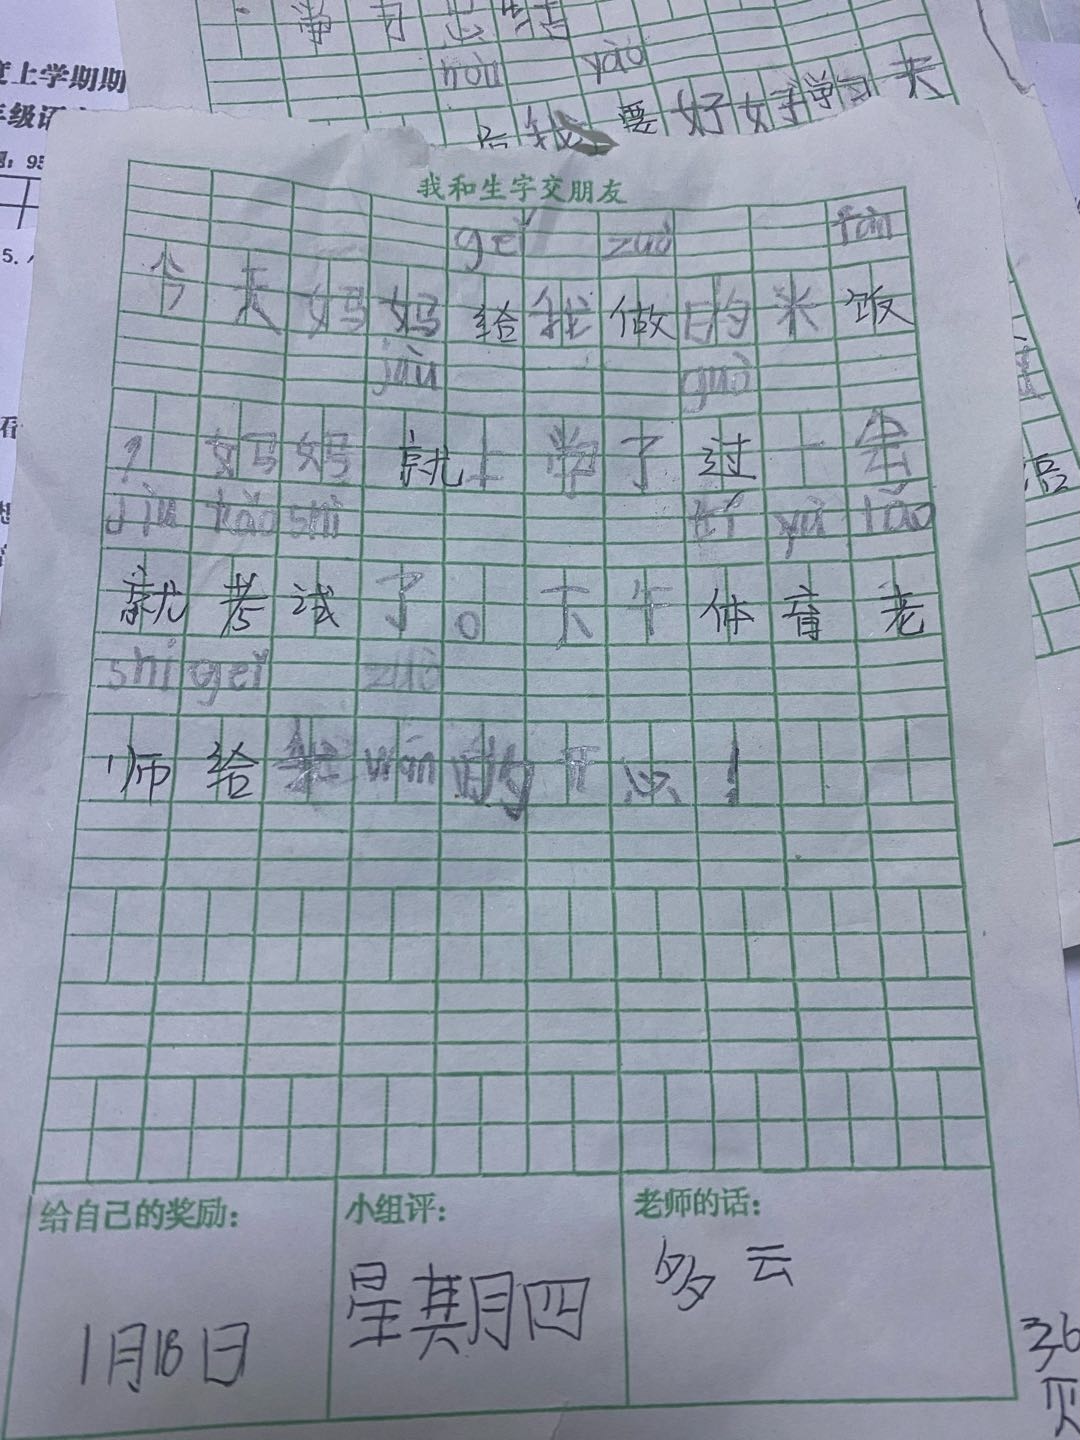 度上学期期
年级语
95
5.
看
想
yào
我要好好学习天
我和生字交朋友
gěi zuò fàn
今天妈妈给我做的米饭
jiù guò
,妈妈就上学了过一会
jiù kǎo shì tǐ yù lǎo
就考试了。下午体育老
shī gěi zuò
师给我wán的开心!
给自己的奖励:
小组评:
老师的话:
1月18日
星期四
多云
36
页